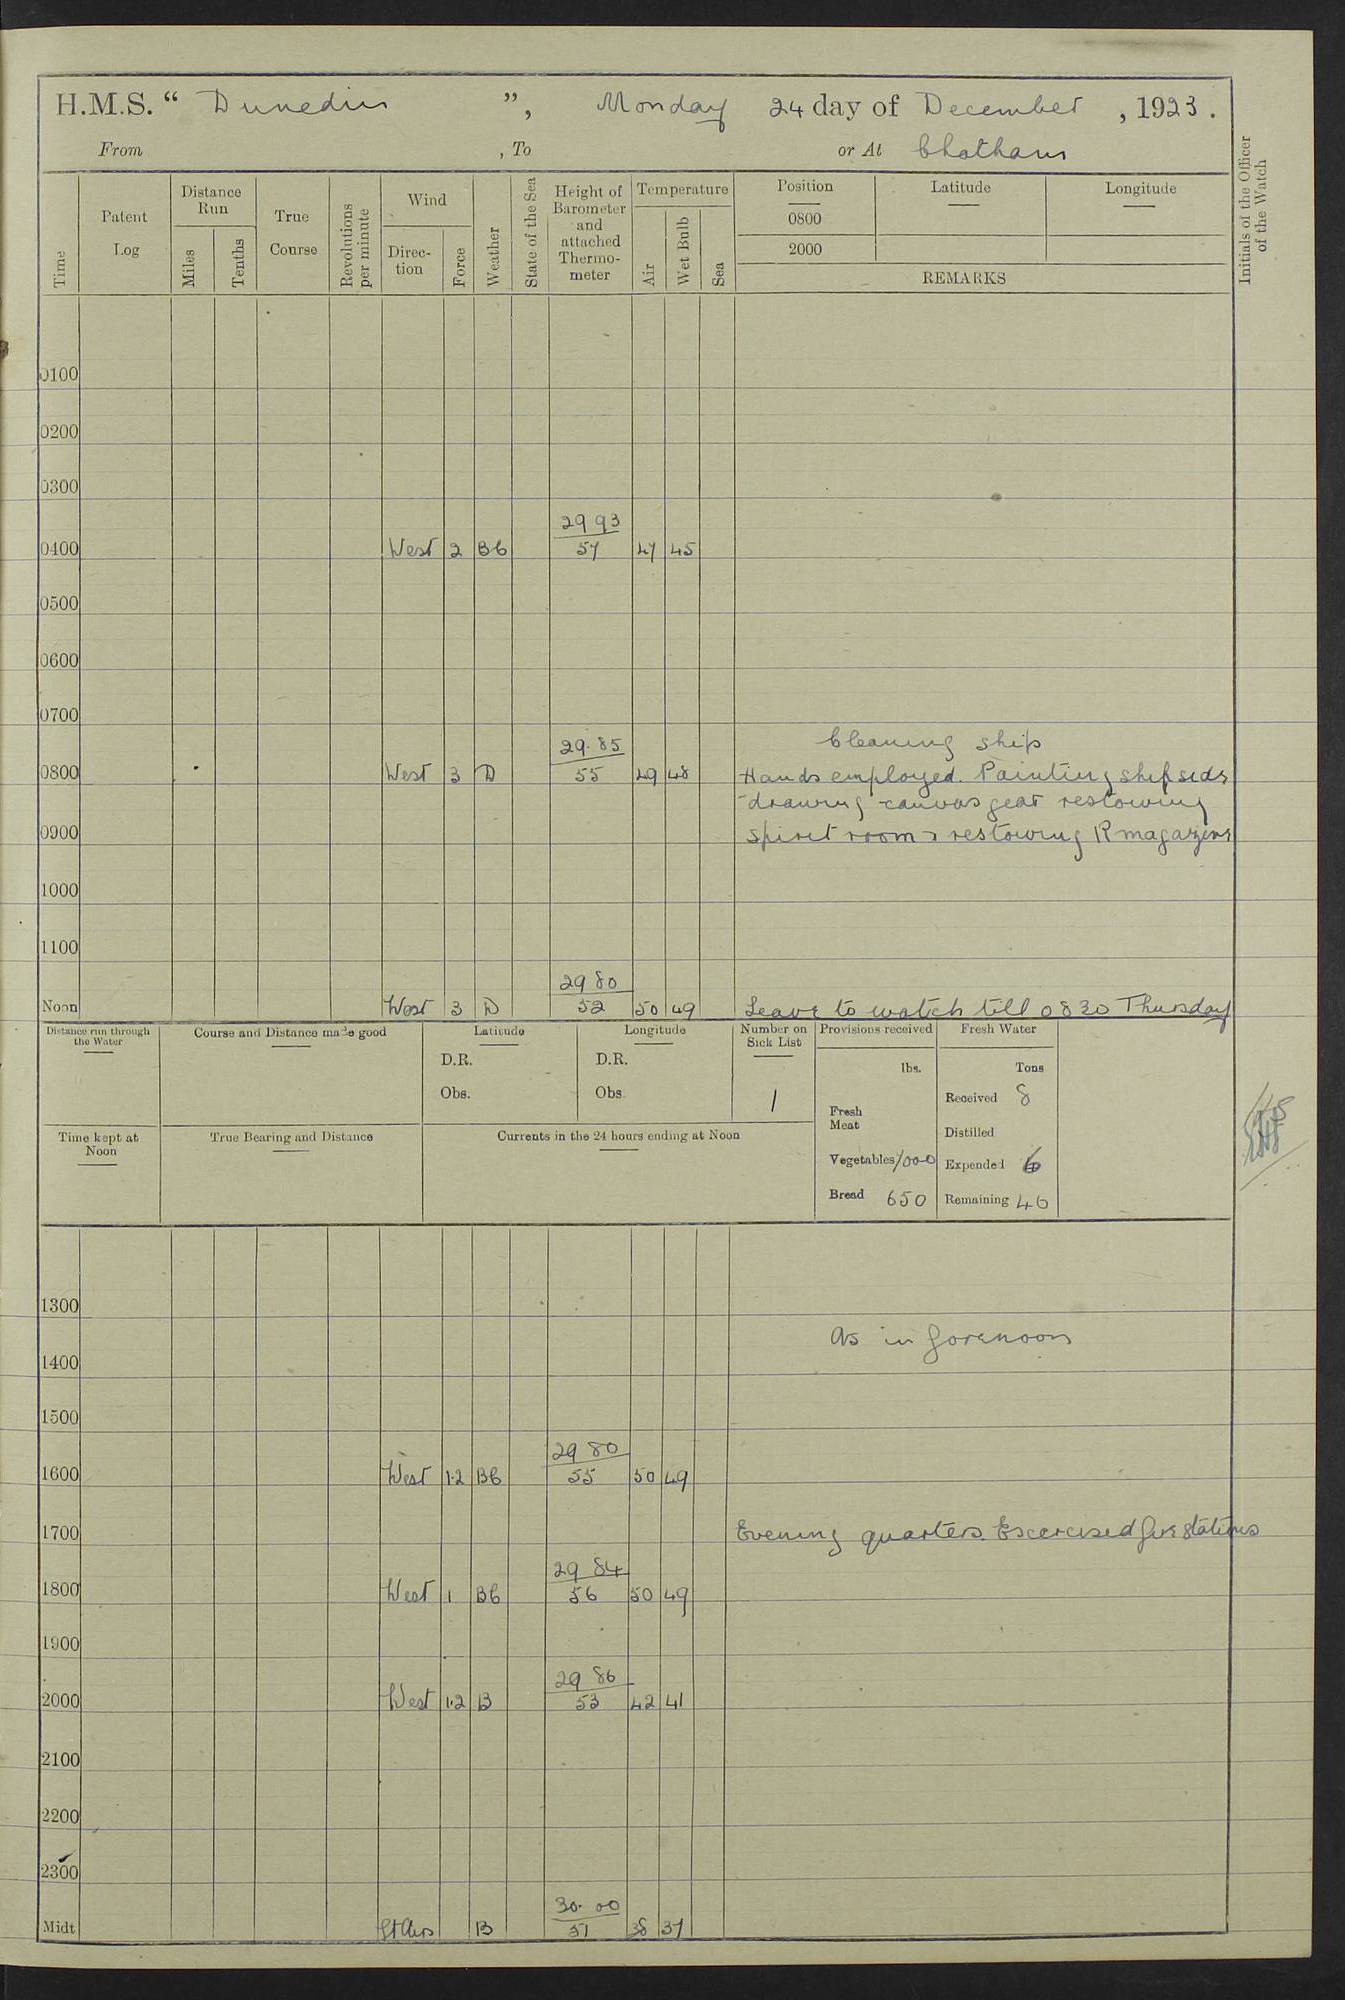 H.M.S. “ Dunedin ”, Monday 24 day of December , 1923 .
From , To or At Chatham
Time
Patent Log
Distance Run
Miles Tenths
True Course
Revolutions per minute
Wind
Direc-tion Force
Weather
State of the Sea
Height of Barometer and attached Thermo-meter
Temperature
Air Wet Bulb Sea
Position Latitude Longitude
0800
2000
REMARKS
Initials of the Officer of the Watch
0100
0200
0300
29 93
0400 West 2 Bc 57 47 45
0500
0600
0700
29.85 Cleaning ship
0800 West 3 D 55 49 48 Hands employed. Painting ship side
drawing canvas gear restowing
0900 spirit room restowing R magazine
1000
1100
29 80
Noon West 3 D 52 50 49 Leave to watch till 0830 Thursday
Distance run through the Water
Course and Distance made good
Latitude
D.R.
Obs.
Longitude
D.R.
Obs.
Number on Sick List
1
Provisions received
lbs.
Fresh Meat
Vegetables 1000
Bread 650
Fresh Water
Tons
Received 8
Distilled
Expended 6
Remaining 46
Time kept at Noon
True Bearing and Distance
Currents in the 24 hours ending at Noon
1300
As in forenoon
1400
1500
29 80
1600 West 1.2 Bc 55 50 49
1700 Evening quarters. Excercised fire stations
29 84
1800 West 1 Bc 56 50 49
1900
29 86
2000 West 1.2 B 53 42 41
2100
2200
2300
30.00
Midt B 51 38 37